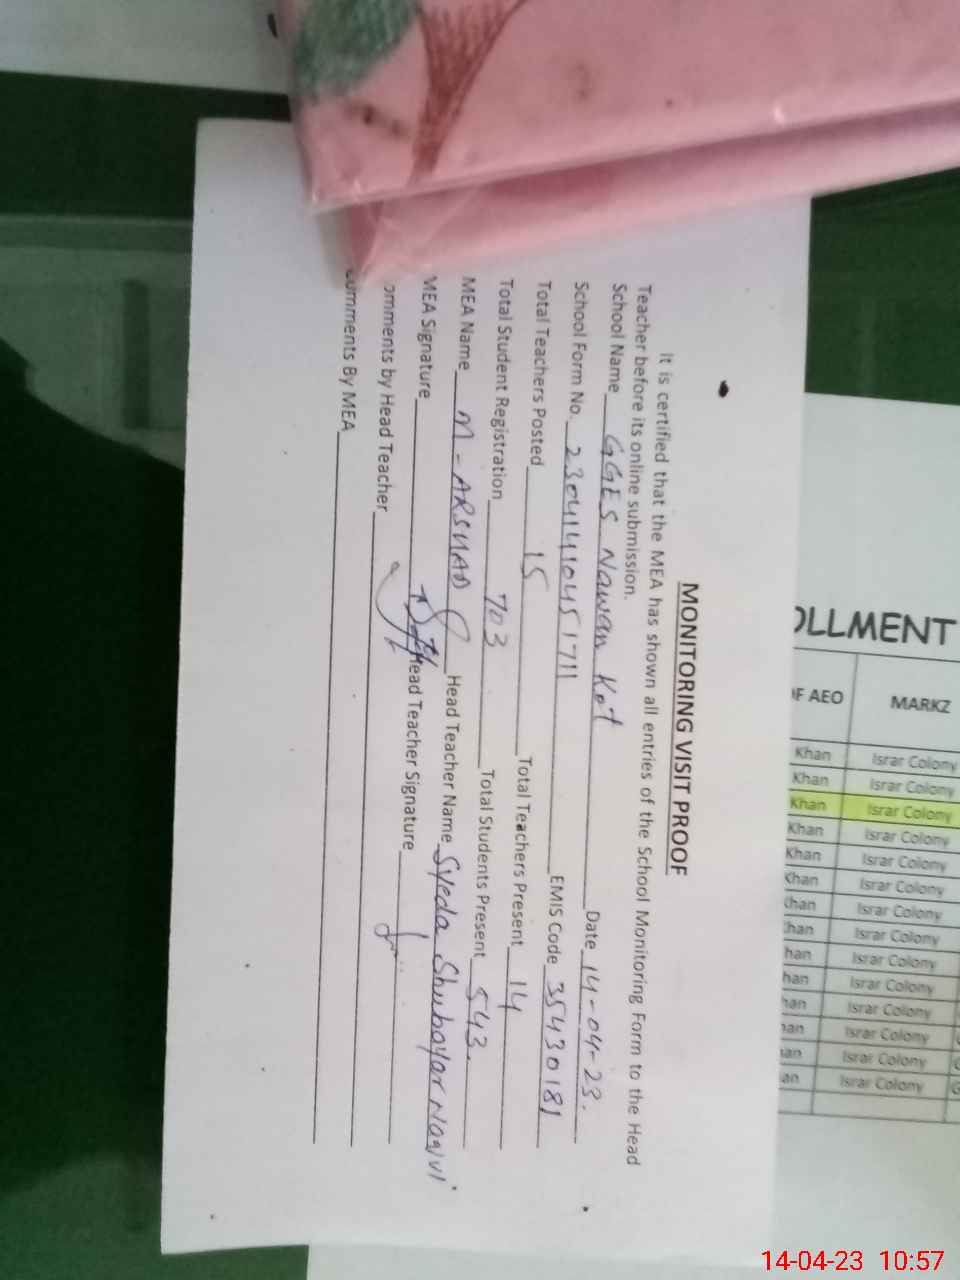 MONITORING VISIT PROOF
It is certified that the MEA has shown all entries of the School Monitoring Form to the Head
Teacher before its online submission.
School Name GGES Nawan Kot Date 14-04-23.
School Form No. 23041410451711 EMIS Code 35430181
Total Teachers Posted 15 Total Teachers Present 14
Total Student Registration 703 Total Students Present 543.
MEA Name M-ARSHAD Head Teacher Name Syeda
MEA Signature Head Teacher Signature
omments by Head Teacher
omments By MEA
OLLMENT
OF AEO MARKZ
Khan Israr Colony
Khan Israr Colony
Khan Israr Colony
Khan Israr Colony
Khan Israr Colony
Khan Israr Colony
Khan Israr Colony
han Israr Colony
han Israr Colony
han Israr Colony
han Israr Colony
an Israr Colony
an Israr Colony
an Israr Colony
14-04-23 10:57